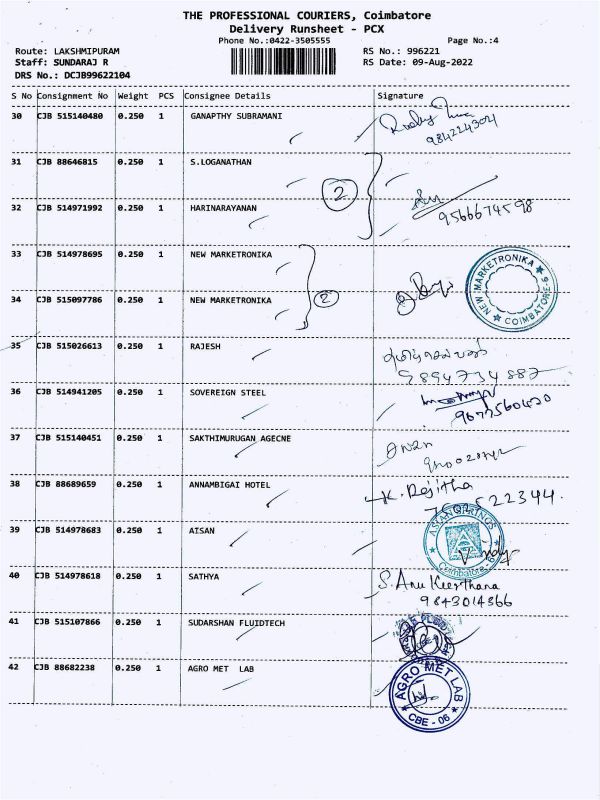 THE PROFESSIONAL COURIERS, Coimbatore
Delivery Runsheet - PCX
Phone No.:0422-3505555 Page No.:4
Route: LAKSHMIPURAM RS No.: 996221
Staff: SUNDARAJ R RS Date: 09-Aug-2022
DRS No.: DCJB99622104
S No Consignment No Weight PCS Consignee Details Signature
30 CJB 515140480 0.250 1 GANAPTHY SUBRAMANI
9842243021
31 CJB 88646815 0.250 1 S.LOGANATHAN
2
32 CJB 514971992 0.250 1 HARINARAYANAN
9566674598
33 CJB 514978695 0.250 1 NEW MARKETRONIKA
NEW MARKETRONIKA
COIMBATORE-6
34 CJB 515097786 0.250 1 NEW MARKETRONIKA
2
35 CJB 515026613 0.250 1 RAJESH
9894734887
36 CJB 514941205 0.250 1 SOVEREIGN STEEL
9677560420
37 CJB 515140451 0.250 1 SAKTHIMURUGAN AGECNE
38 CJB 88689659 0.250 1 ANNAMBIGAI HOTEL K. Rejitha
39 CJB 514978683 0.250 1 AISAN
40 CJB 514978618 0.250 1 SATHYA S. Anu Keerthana
9843014366
41 CJB 515107866 0.250 1 SUDARSHAN FLUIDTECH
42 CJB 88682238 0.250 1 AGRO MET LAB
AGRO MET LAB
CBE - 06